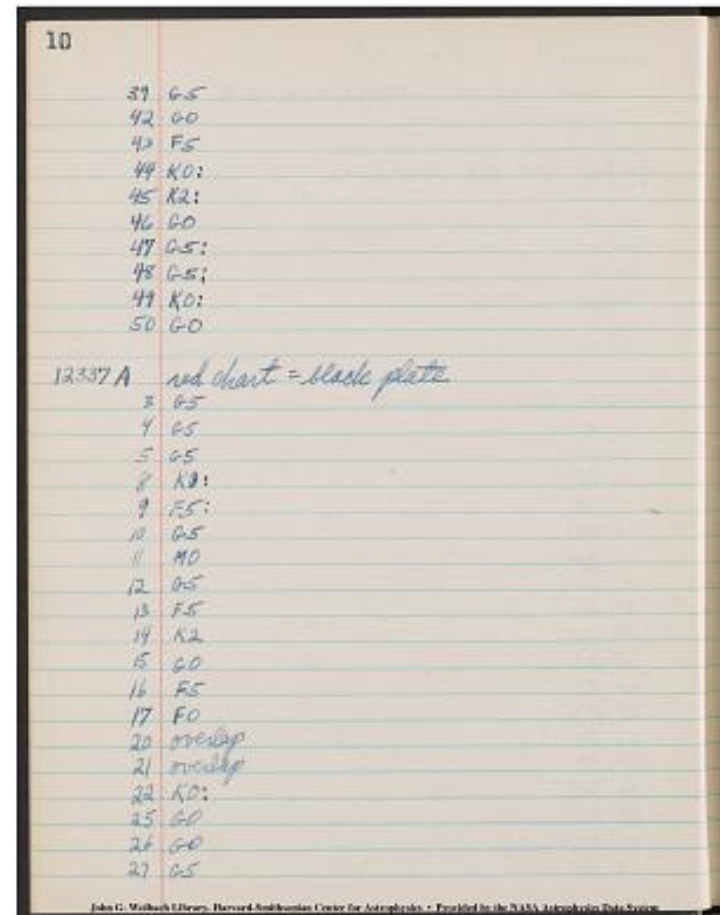 10
39 G5
42 G0
43 F5
44 K0:
45 K2:
46 G0
47 G5:
48 G5:
49 K0:
50 G0
12337 A red chart = black plate
3 G5
4 G5
5 G5
8 K0:
9 F5:
10 G5
11 M0
12 G5
13 F5
14 K2
15 G0
16 F5
17 F0
20 overlap
21 overlap
22 K0:
25 G0
26 G0
27 G5
John G. Wolbach Library, Harvard-Smithsonian Center for Astrophysics • Provided by the NASA Astrophysics Data System